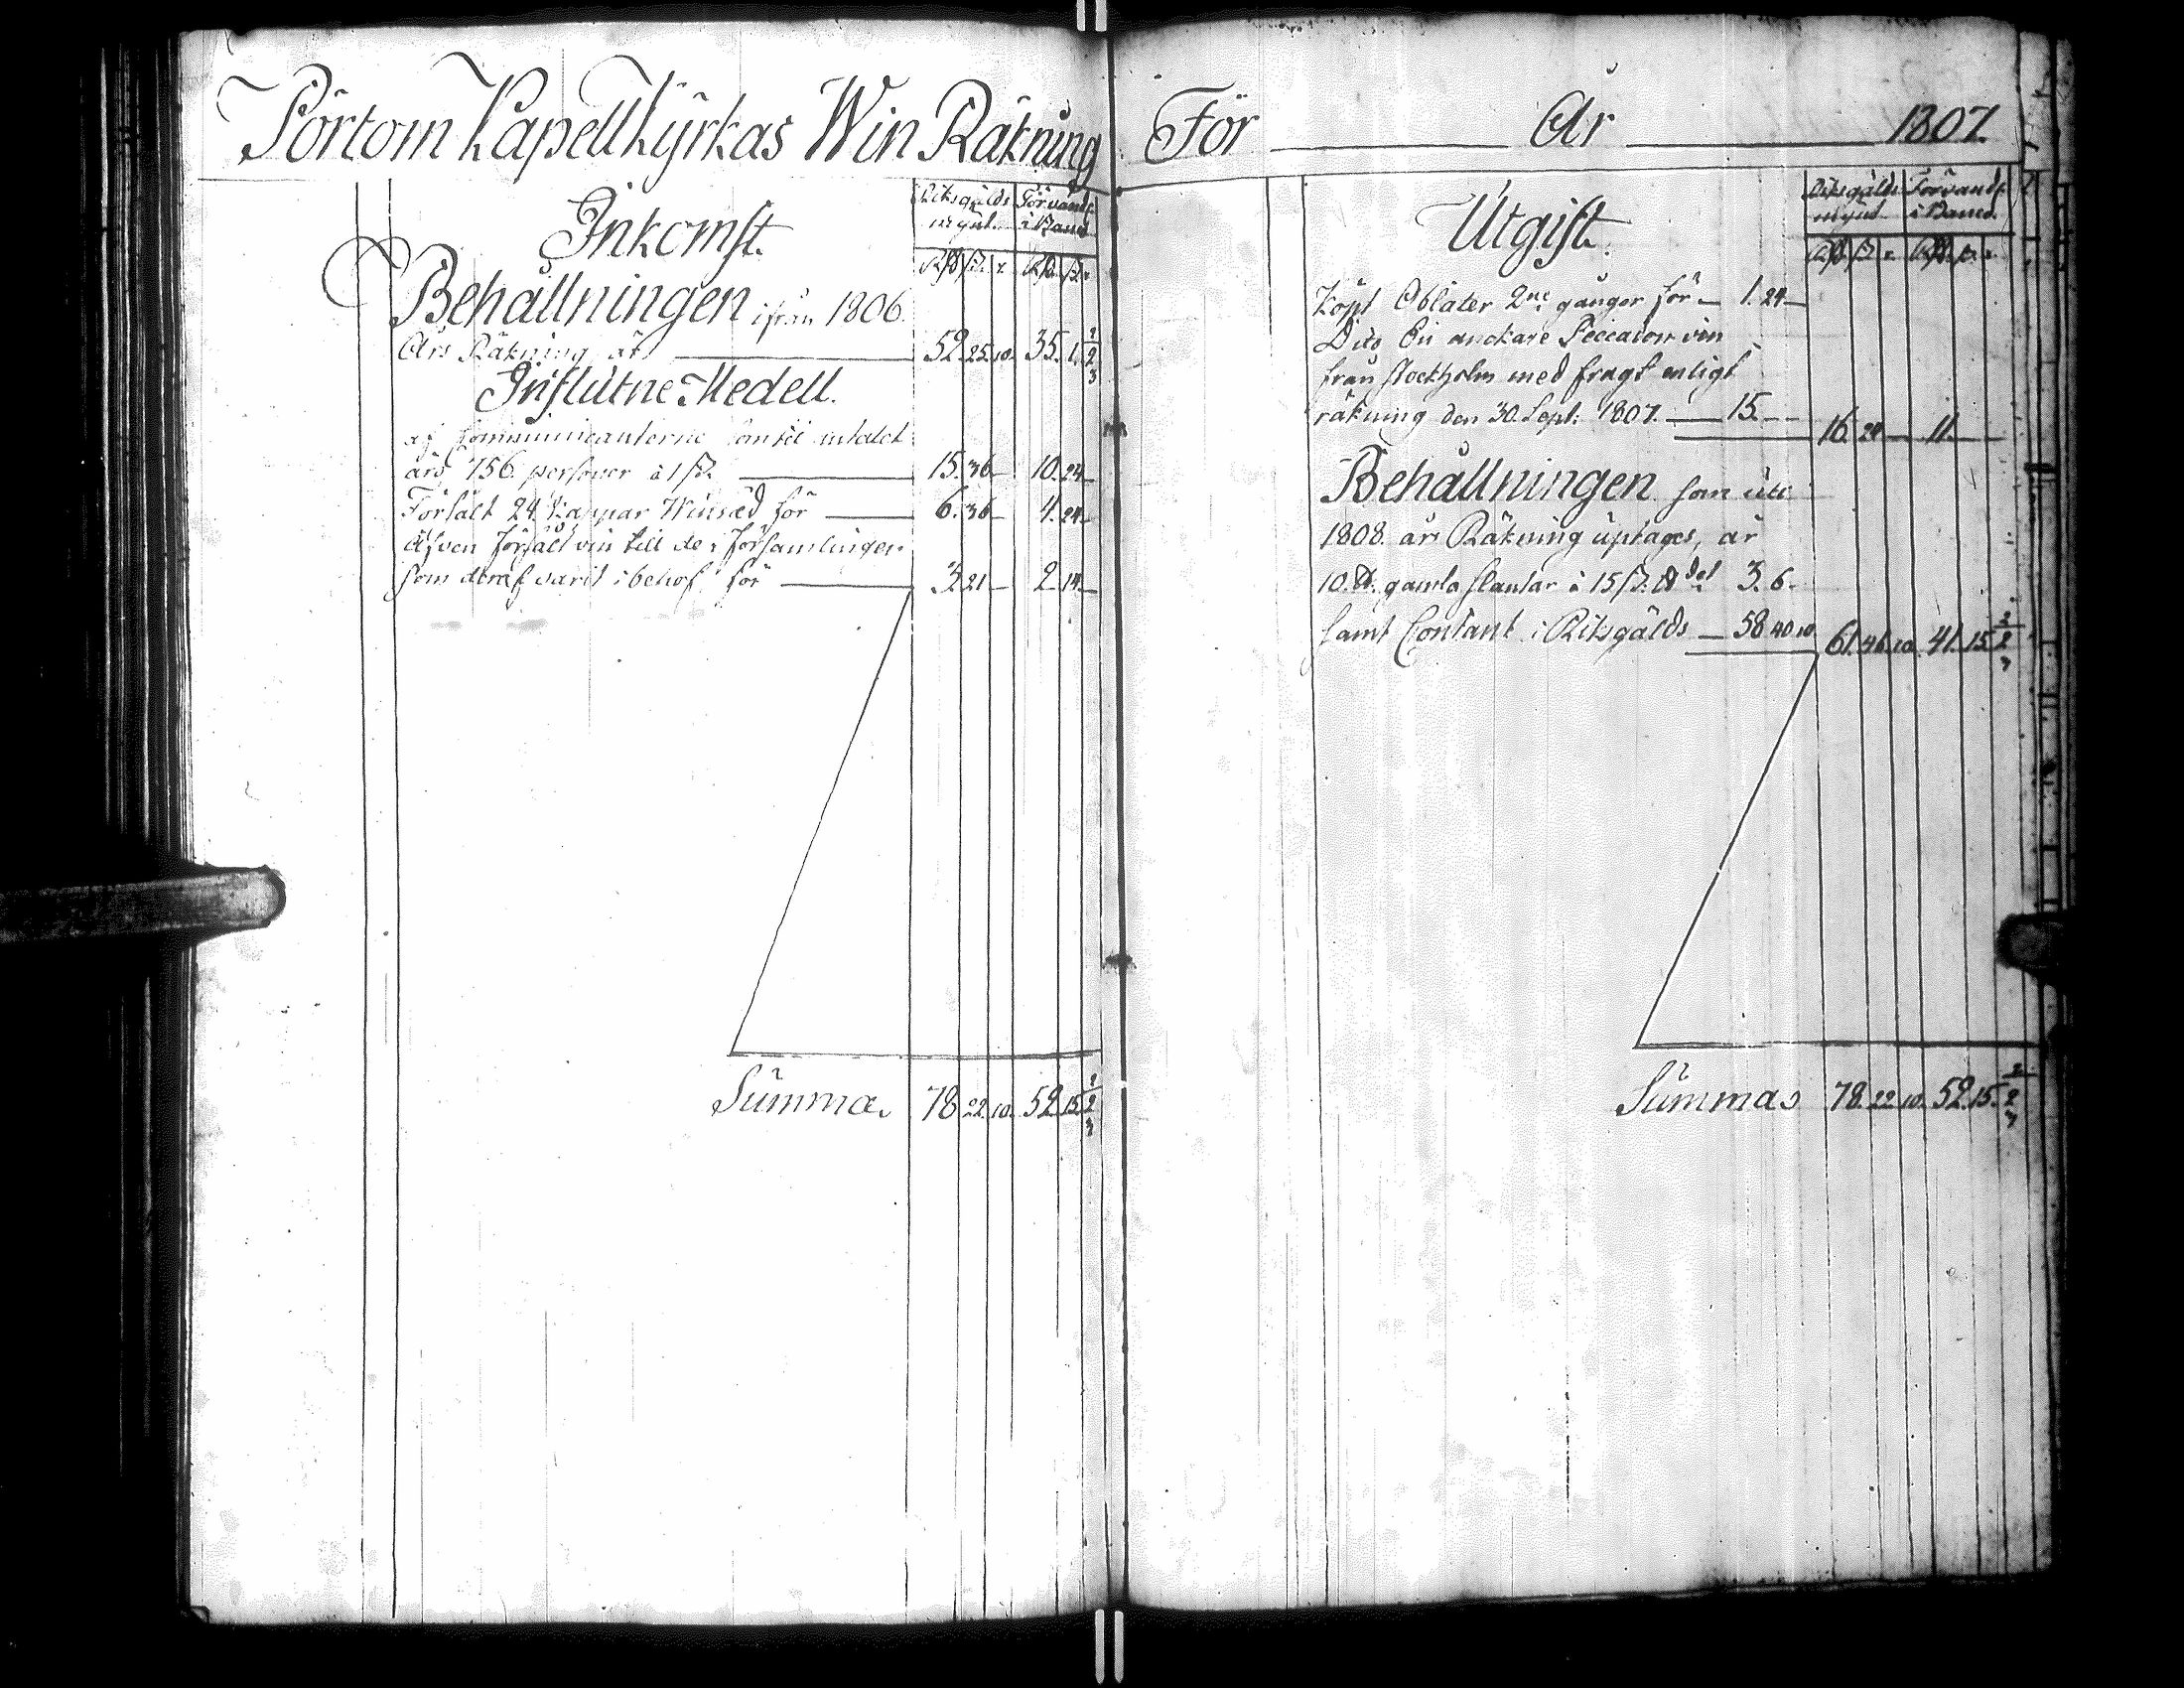 Pörtom Kapell Kyrkas Win Räkning
Inkomst.
Riksgälds Förvandl.
mynt. i Banco
Rd ß r Rd ß r
Behållningen ifrån 1806.
Års Räkning är 52. 25. 10. 35. 1. 2/3
Influtne Medell.
af Communicanterne
756. personer à 1 ß. 15. 36 10. 24
Försålt 24 Kappar Winsæd för 6. 36 4. 24
Äfven försålt vin till de i Församlingen
som deraf varit i behof för 3. 21 2. 14
Summa. 78. 22. 10. 52. 15. 2/3
För År 1807.
Utgift.
Riksgälds Förvandl.
mynt. i Banco.
Rd ß r Rd ß r
Köpt Oblater 2ne gånger för 1. 24
Dito En anckare Peccator vin
från Stockholm med fragt enligt
räkning den 30. Sept. 1807. 15. 16. 24 11.
Behållningen som uti
1808. års Räkning uptages, är
10. ℔. gamla slantar à 15 ß. ℔det 3. 6.
samt Contant i Riksgälds 58. 40. 10 61. 46. 10. 41. 15. 2/3
Summa 78. 22. 10. 52. 15. 2/3